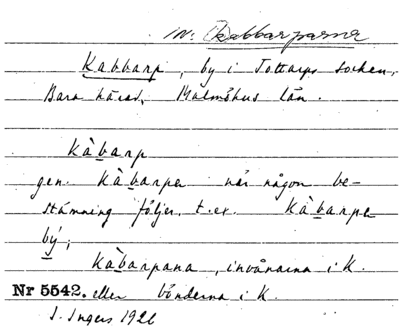 inv. Kabbarparna
Kabbarp, by i Tottarps socken,
Bara härad, Malmöhus län.
Kàbarp
gen. Kàbarpa när någon be-
stämning följer, t.ex. Kàbarpa
bý;
Kàbarpana, invånarna i K.
Nr 5542. eller bönderna i K.
I. Ingers 1926